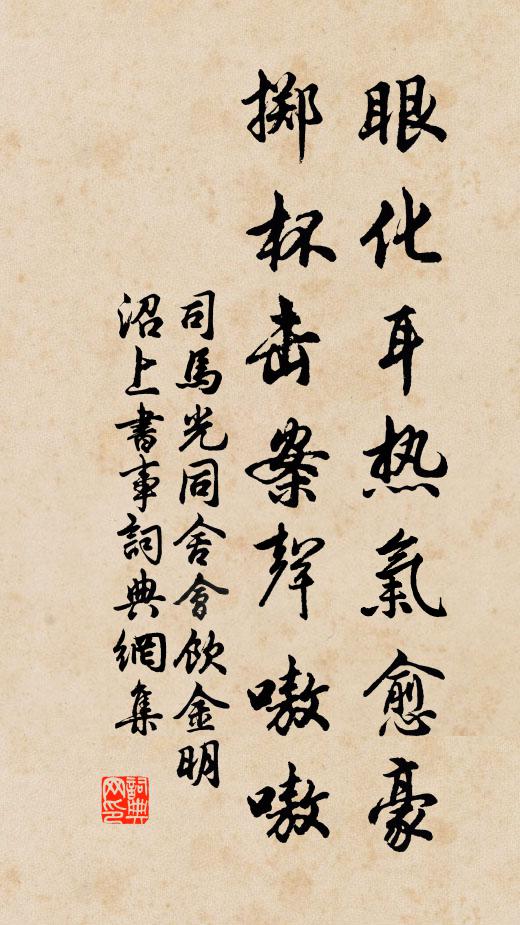 眼化耳热氣愈豪
掷杯击案聲嗷嗷
司馬光同舍會飲金明
沼上書事詞典網集
詞典网印